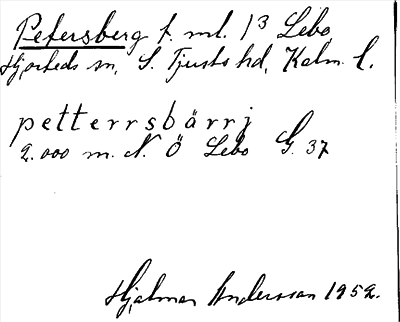 Petersberg t. ml. 13 Lebo,
Hjorteds sn, S. Tjusts hd, Kalm. l.
petterrsbärrj
2.000 m. N. Ö Lebo G. 37
Hjalmar Andersson 1952.